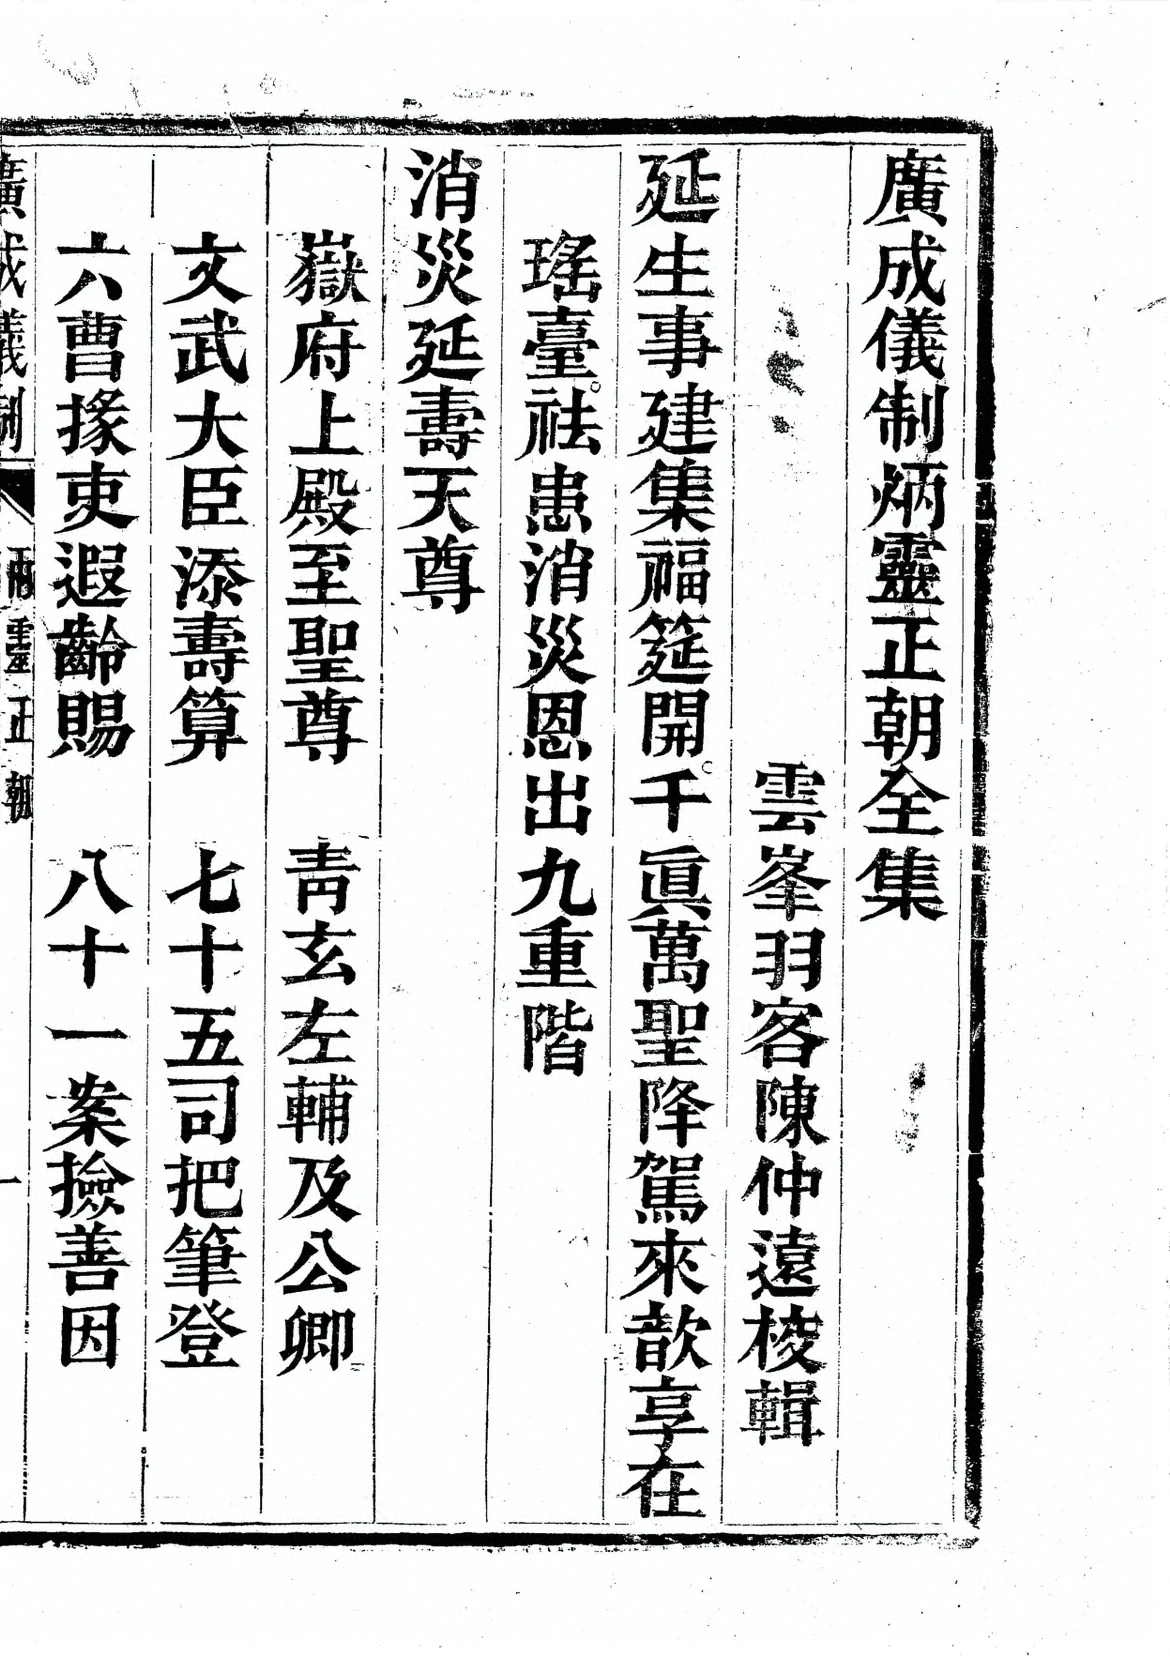 廣成儀制炳靈正朝全集
雲峯羽客陳仲遠校輯
延生事建集福筵開。千眞萬聖降駕來歆享在
瑤臺。祛患消災恩出九重階
消災延壽天尊
嶽府上殿至聖尊　青玄左輔及公卿
文武大臣添壽算　七十五司把筆登
六曹掾吏遐齡賜　八十一案撿善因
廣成儀制　炳靈正朝　一